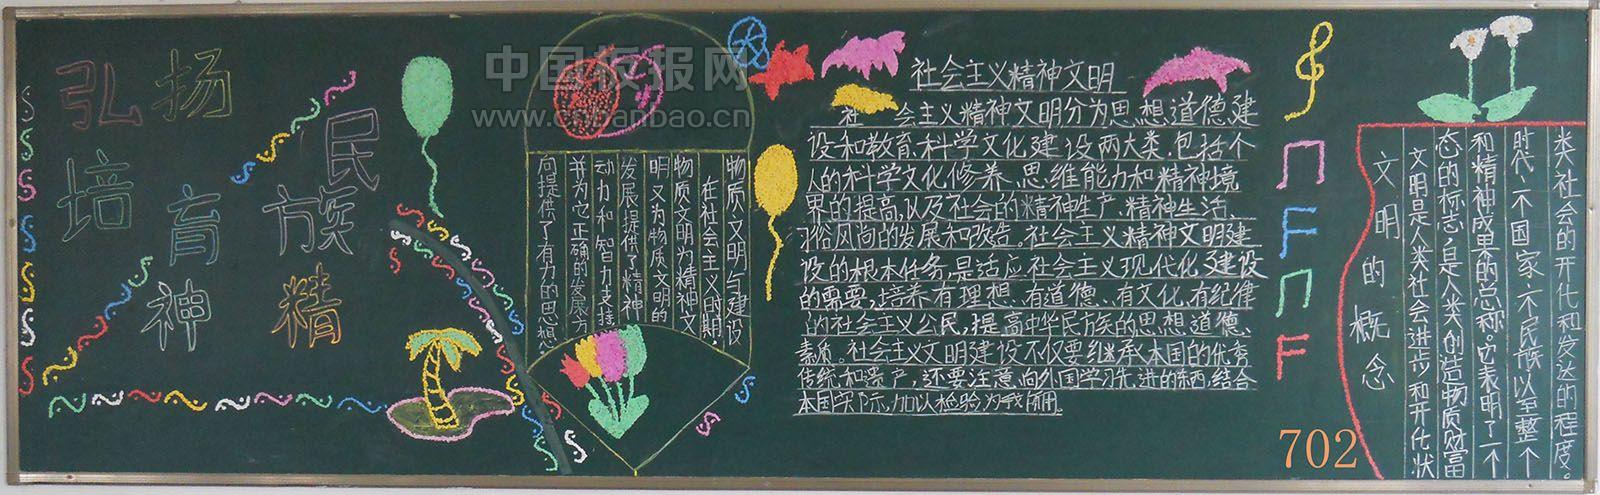 弘扬
培育
民族
精神
中国板报网
www.cnbanbao.cn
物质文明与建设
在社会主义时期,
物质文明为精神文
明又为物质文明的
发展提供了精神
动力和智力支持
并为它正确的发展方
向提供了有力的思想、
社会主义精神文明
社会主义精神文明分为思想道德建
设和教育科学文化建设两大类.包括个
人的科学文化修养、思维能力和精神境
界的提高,以及社会的精神生产、精神生活、
习俗风尚的发展和改造。社会主义精神文明建
设的根本任务,是适应社会主义现代化建设
的需要,培养有理想、有道德、有文化、有纪律
的社会主义公民,提高中华民族的思想道德、
素质。社会主义文明建设不仅要继承本国的优秀
传统和遗产,还要注意向外国学习先进的东西,结合
本国实际,加以检验为我所用.
文明的概念
文明是人类社会进步和开化状
态的标志,是人类创造物质财富
和精神成果的总称。它表明了一个
时代、一个国家、一个民族以至整个
类社会的开化和发达的程度。
702